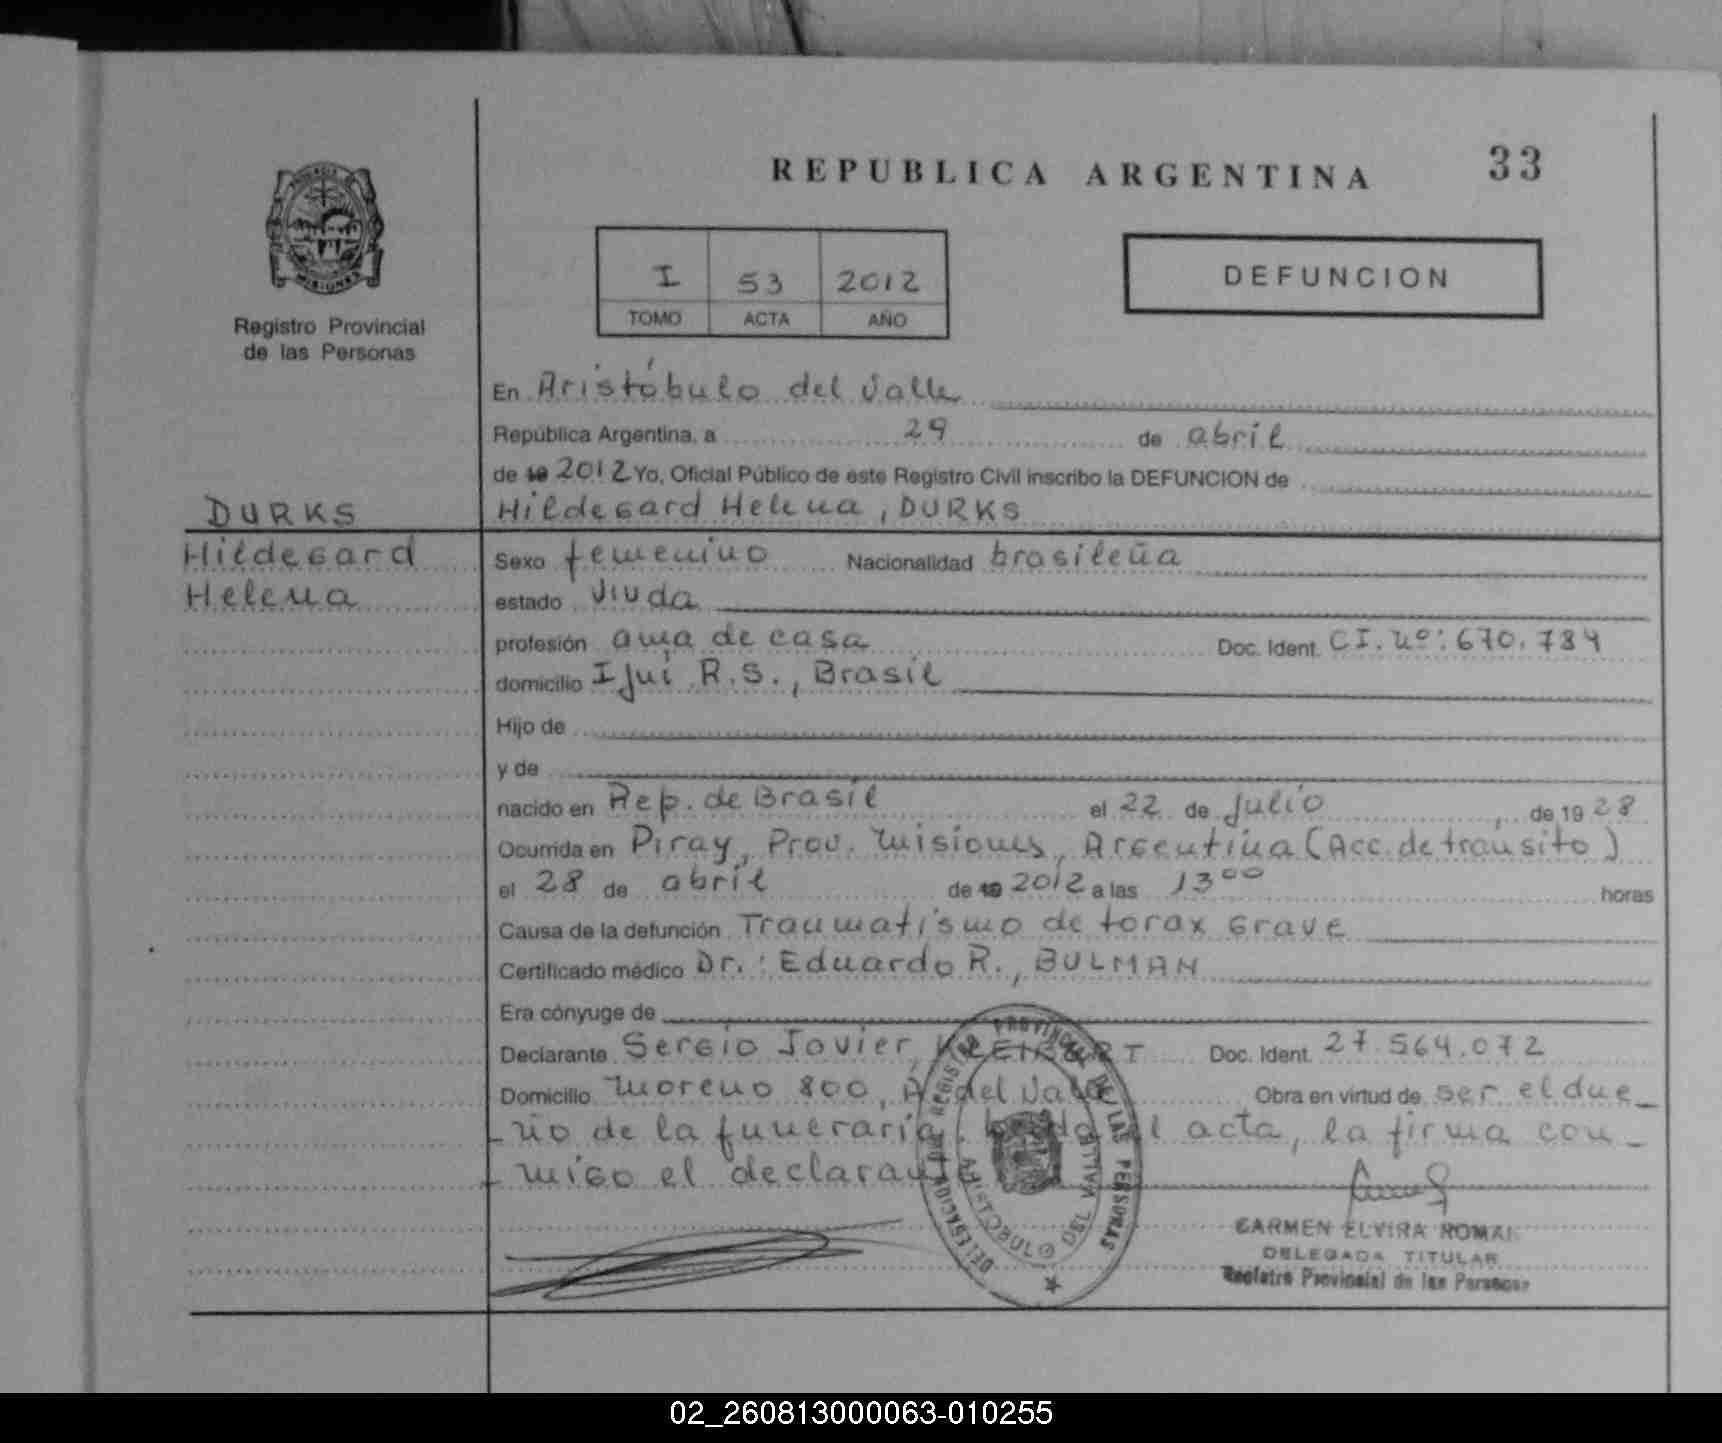 REPUBLICA ARGENTINA 33
PROVINCIA
MISIONES
Registro Provincial
de las Personas
I 53 2012
TOMO ACTA AÑO
DEFUNCION
En Aristóbulo del Valle
República Argentina, a 29 de abril
de 19 2012 Yo, Oficial Público de este Registro Civil inscribo la DEFUNCION de
DURKS
Hildegard Helena, DURKS
Hildegard
Helena
Sexo femenino Nacionalidad brasileña
estado viuda
profesión ama de casa Doc. Ident. CI. nº: 670.784
domicilio Ijui R.S., Brasil
Hijo de
y de
nacido en Rep. de Brasil el 22 de julio, de 19 28
Ocurrida en Piray, Prov. Misiones, Argentina (Acc. de transito)
el 28 de abril de 19 2012 a las 13 00 horas
Causa de la defunción Traumatismo de torax grave
Certificado médico Dr.: Eduardo R., BULMAN
Era cónyuge de
Declarante Sergio Javier, Doc. Ident. 27.564.072
Domicilio Moreno 800, A. del Valle Obra en virtud de ser el due_
_ño de la funeraria. acta, la firma con_
_migo el declarante
DELEGACION DEL REGISTRO PROVINCIAL DE LAS PERSONAS
ARISTOBULO DEL VALLE
CARMEN ELVIRA ROMAN
DELEGADA TITULAR
Registro Provincial de las Personas
02_260813000063-010255